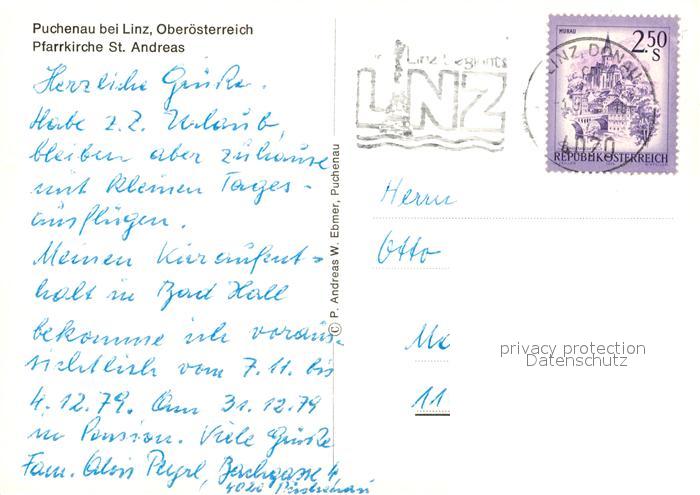 Puchenau bei Linz, Oberösterreich
Pfarrkirche St. Andreas
Herzliche Grüße.
Habe z.Z. Urlaub,
bleiben aber zuhause
mit kleinen Tages-
ausflügen.
Meinen Kuraufent-
halt in Bad Hall
bekomme ich voraus-
sichtlich vom 7.11. bis
4.12.79. Am 31.12.79
in Pension. Viele Grüße
Fam. Alois Peyrl, Bachgasse 4
4020 Puchenau
© P. Andreas W. Ebmer, Puchenau
Linz beginnt's
LINZ
LINZ, DONAU
4020
MURAU
2.50
S
REPUBLIK ÖSTERREICH
Herrn
Otto
11
privacy protection
Datenschutz